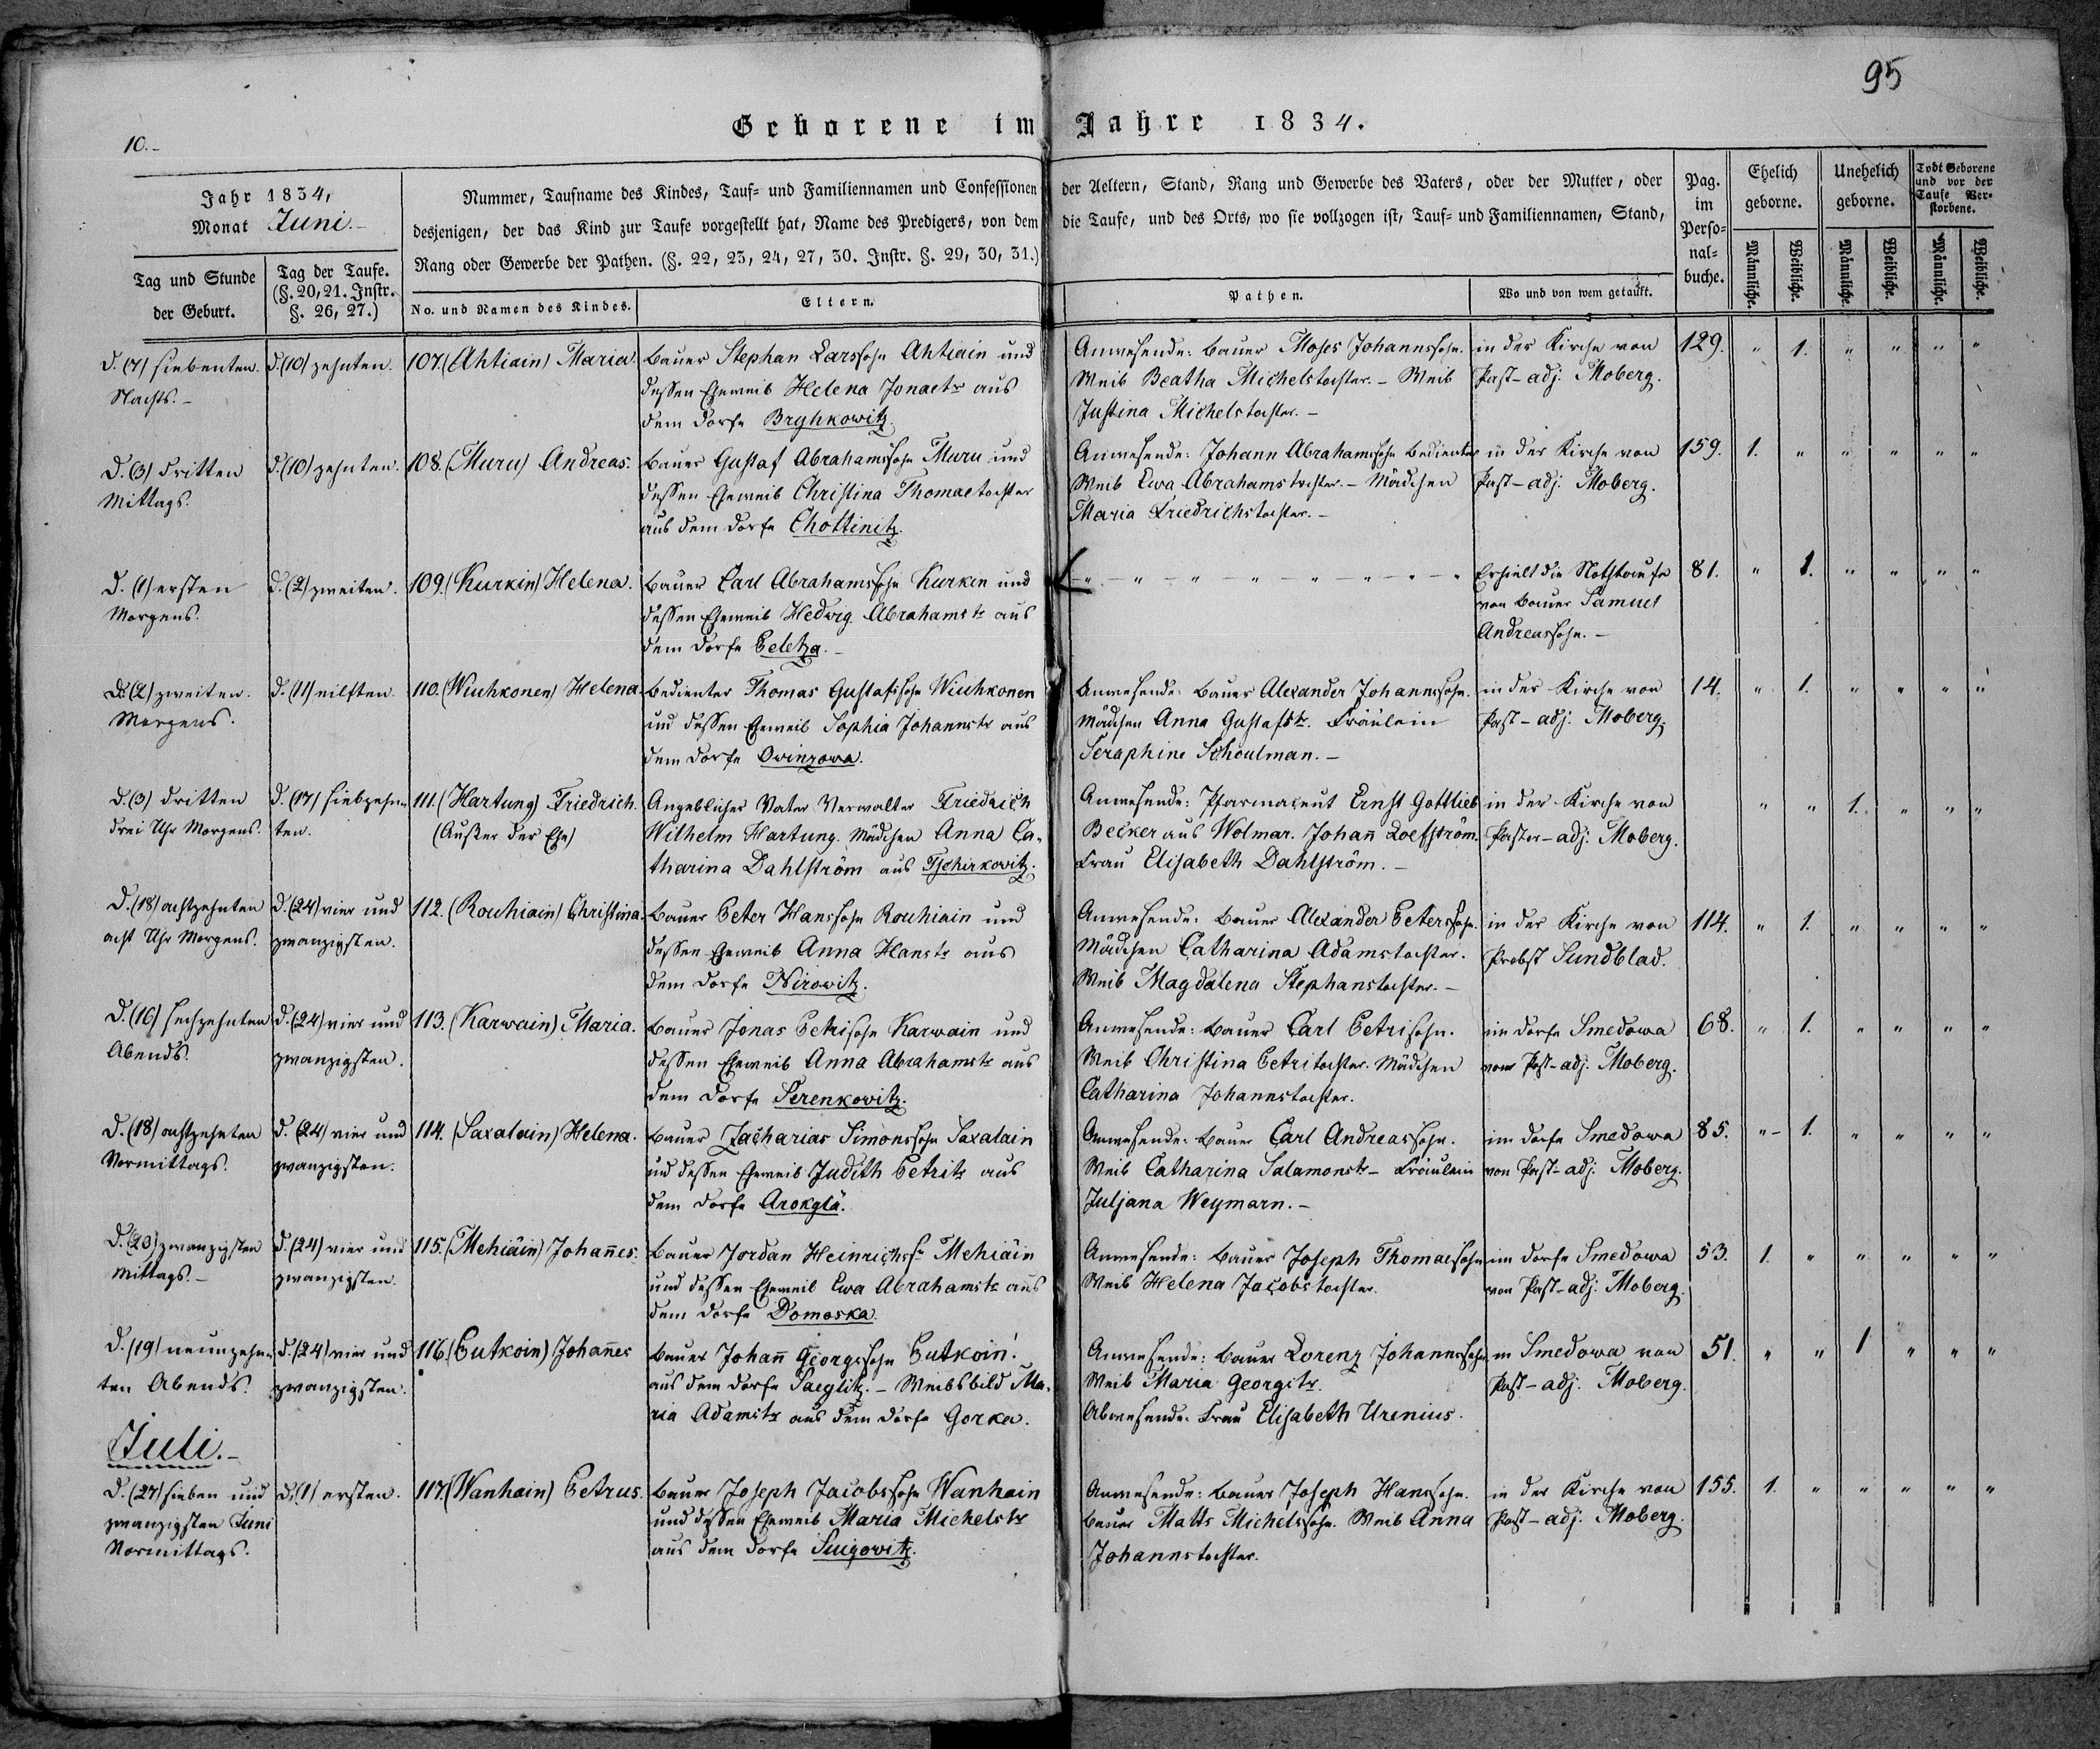 95
10.-
Geborene im Jahre 1834.
Jahr 1834,
Monat Juni.-
Nummer, Taufname des Kindes, Tauf= und Familiennamen und Confessionen der Aeltern, Stand, Rang und Gewerbe des Vaters, oder der Mutter, oder
desjenigen, der das Kind zur Taufe vorgestellt hat, Name des Predigers, von dem die Taufe, und des Orts, wo sie vollzogen ist, Tauf= und Familiennamen, Stand,
Rang oder Gewerbe der Pathen. (§. 22, 23, 24, 27, 30. Instr. §. 29, 30, 31.)
Pag.
im
Perso=
nal=
buche.
Ehelich
geborne.
Unehelich
geborne.
Todt Geborene
und vor der
Taufe Ver=
storbene.
Tag und Stunde
der Geburt.
Tag der Taufe.
(§. 20, 21. Instr.
§. 26, 27.)
No. und Namen des Kindes.
Eltern.
Pathen.
Wo und von wem getauft.
Männliche.
Weibliche.
Männliche.
Weibliche.
Männliche.
Weibliche.
d. (7) siebenten.
Nachts.-
d. (10) zehnten.
107. (Ahtiain) Maria.
Bauer Stephan Larssohn Ahtiain und
dessen Eheweib Helena Jonaetr aus
dem Dorfe Bryhkowitz.
Anwesende: Bauer Moses Johannssohn.
Weib Beatha Michelstochter. - Weib
Justina Michelstochter. -
in der Kirche von
Past-adj: Moberg.
129. " 1. " " " "
d. (3) dritten
Mittags.
d. (10) zehnten.
108. (Muru) Andreas.
Bauer Gustaf Abrahamssohn Muru und
dessen Eheweib Christina Thomaetochter
aus dem Dorfe Chottinitz.
Anwesende: Johann Abrahamssohn Bedienter
Weib Ewa Abrahamstochter. - Mädchen
Maria Friedrichstochter. -
in der Kirche von
Past-adj: Moberg.
159. 1. " " " " "
d. (1) ersten
Morgens.
d. (2) zweiten.
109. (Kurkin) Helena.
Bauer Carl Abrahamssohn Kurkin und
dessen Eheweib Hedwig Abrahamstr aus
dem Dorfe Peletza. -
" - " - " - " - " - " - " - "
Erhielt die Nothtaufe
von Bauer Samuel
Andreassohn. -
81. " 1. " " " "
d. (2) zweiten.
Morgens.
d. (11) eilften.
110. (Wiuhkonen) Helena.
Bedienter Thomas Gustafssohn Wiuhkonen
und dessen Eheweib Sophia Johannstr aus
dem Dorfe Owinzowa.
Anwesende: Bauer Alexander Johannssohn.
Mädchen Anna Gustafstr. Fräulein
Seraphine Schoulman. -
in der Kirche von
Past-adj: Moberg.
14. " 1. " " " "
d. (3) dritten
drei Uhr Morgens.
d. (17) siebzehn-
ten.
111. (Hartung) Friedrich.
(Außer der Ehe)
Angeblicher Vater Verwalter Friedrich
Wilhelm Hartung. Mädchen Anna Ca-
tharina Dahlström aus Tschirkowitz.
Anwesende: Pfarmaceut Ernst Gottlieb
Becker aus Wolmar. Johañ Loefström.
Frau Elisabeth Dahlström. -
in der Kirche von
Pastor-adj: Moberg.
" " 1. " " "
d. (18) achtzehnten
acht Uhr Morgens.
d. (24) vier und
zwanzigsten.
112. (Rouhiain) Christina.
Bauer Peter Hanssohn Rouhiain und
dessen Eheweib Anna Hanstr aus
dem Dorfe Nirowitz.
Anwesende: Bauer Alexander Peterssohn.
Mädchen Catharina Adamstochter.
Weib Magdalena Stephanstochter. -
in der Kirche von
Probst Sundblad.
114. " 1. " " " "
d. (16) sechzehnten
Abends.
d. (24) vier und
zwanzigsten.
113. (Karwain) Maria.
Bauer Jonas Petrisohn Karwain und
dessen Eheweib Anna Abrahamstr aus
dem Dorfe Serenkowitz.
Anwesende: Bauer Carl Petrisohn.
Weib Christina Petritochter. Mädchen
Catharina Johannstochter.
im Dorfe Smedowa
vom Past-adj: Moberg.
68. " 1. " " " "
d. (18) achtzehnten
Vormittags.
d. (24) vier und
zwanzigsten.
114. (Saxalain) Helena.
Bauer Zacharias Simonssohn Saxalain
und dessen Eheweib Judith Petritr aus
dem Dorfe Arokylä.
Anwesende: Bauer Carl Andreassohn.
Weib Catharina Salamonstr - Fräulein
Juljana Weymarn. -
im Dorfe Smedowa
von Past-adj: Moberg.
85. " - 1. " " " "
d. (20) zwanzigsten
Mittags. -
d. (24) vier und
zwanzigsten.
115. (Mehiäin) Johañes.
Bauer Jordan Heinrichs Mehiäin
und dessen Eheweib Ewa Abrahamstr aus
dem Dorfe Domoska.
Anwesende: Bauer Joseph Thomaesohn
Weib Helena Jacobstochter.
im Dorfe Smedowa
von Past-adj: Moberg.
53. 1. " " " " "
d. (19) neunzehn-
ten Abends.
d. (24) vier und
zwanzigsten.
116. (Putkoin) Johañes
Bauer Johañ Georgssohn Putkoin.
aus dem Dorfe Saeglitz. - Weibsbild Ma-
ria Adamstr aus dem Dorfe Gorka.
Anwesende: Bauer Lorenz Johannssohn
Weib Maria Georgitr.
Abwesende: Frau Elisabeth Urenius.
in Smedowa von
Past-adj: Moberg.
51. " " 1 " " "
Juli.-
d. (27) sieben und
zwanzigsten Juni
Vormittags.
d. (1) ersten.
117. (Wanhain) Petrus.
Bauer Joseph Jacobssohn Wanhain
und dessen Eheweib Maria Michelstr
aus dem Dorfe Sugowitz.
Anwesende: Bauer Joseph Hanssohn.
Bauer Matts Michelssohn. Weib Anna
Johannstochter.
in der Kirche von
Past-adj: Moberg.
155. 1. " " " " "